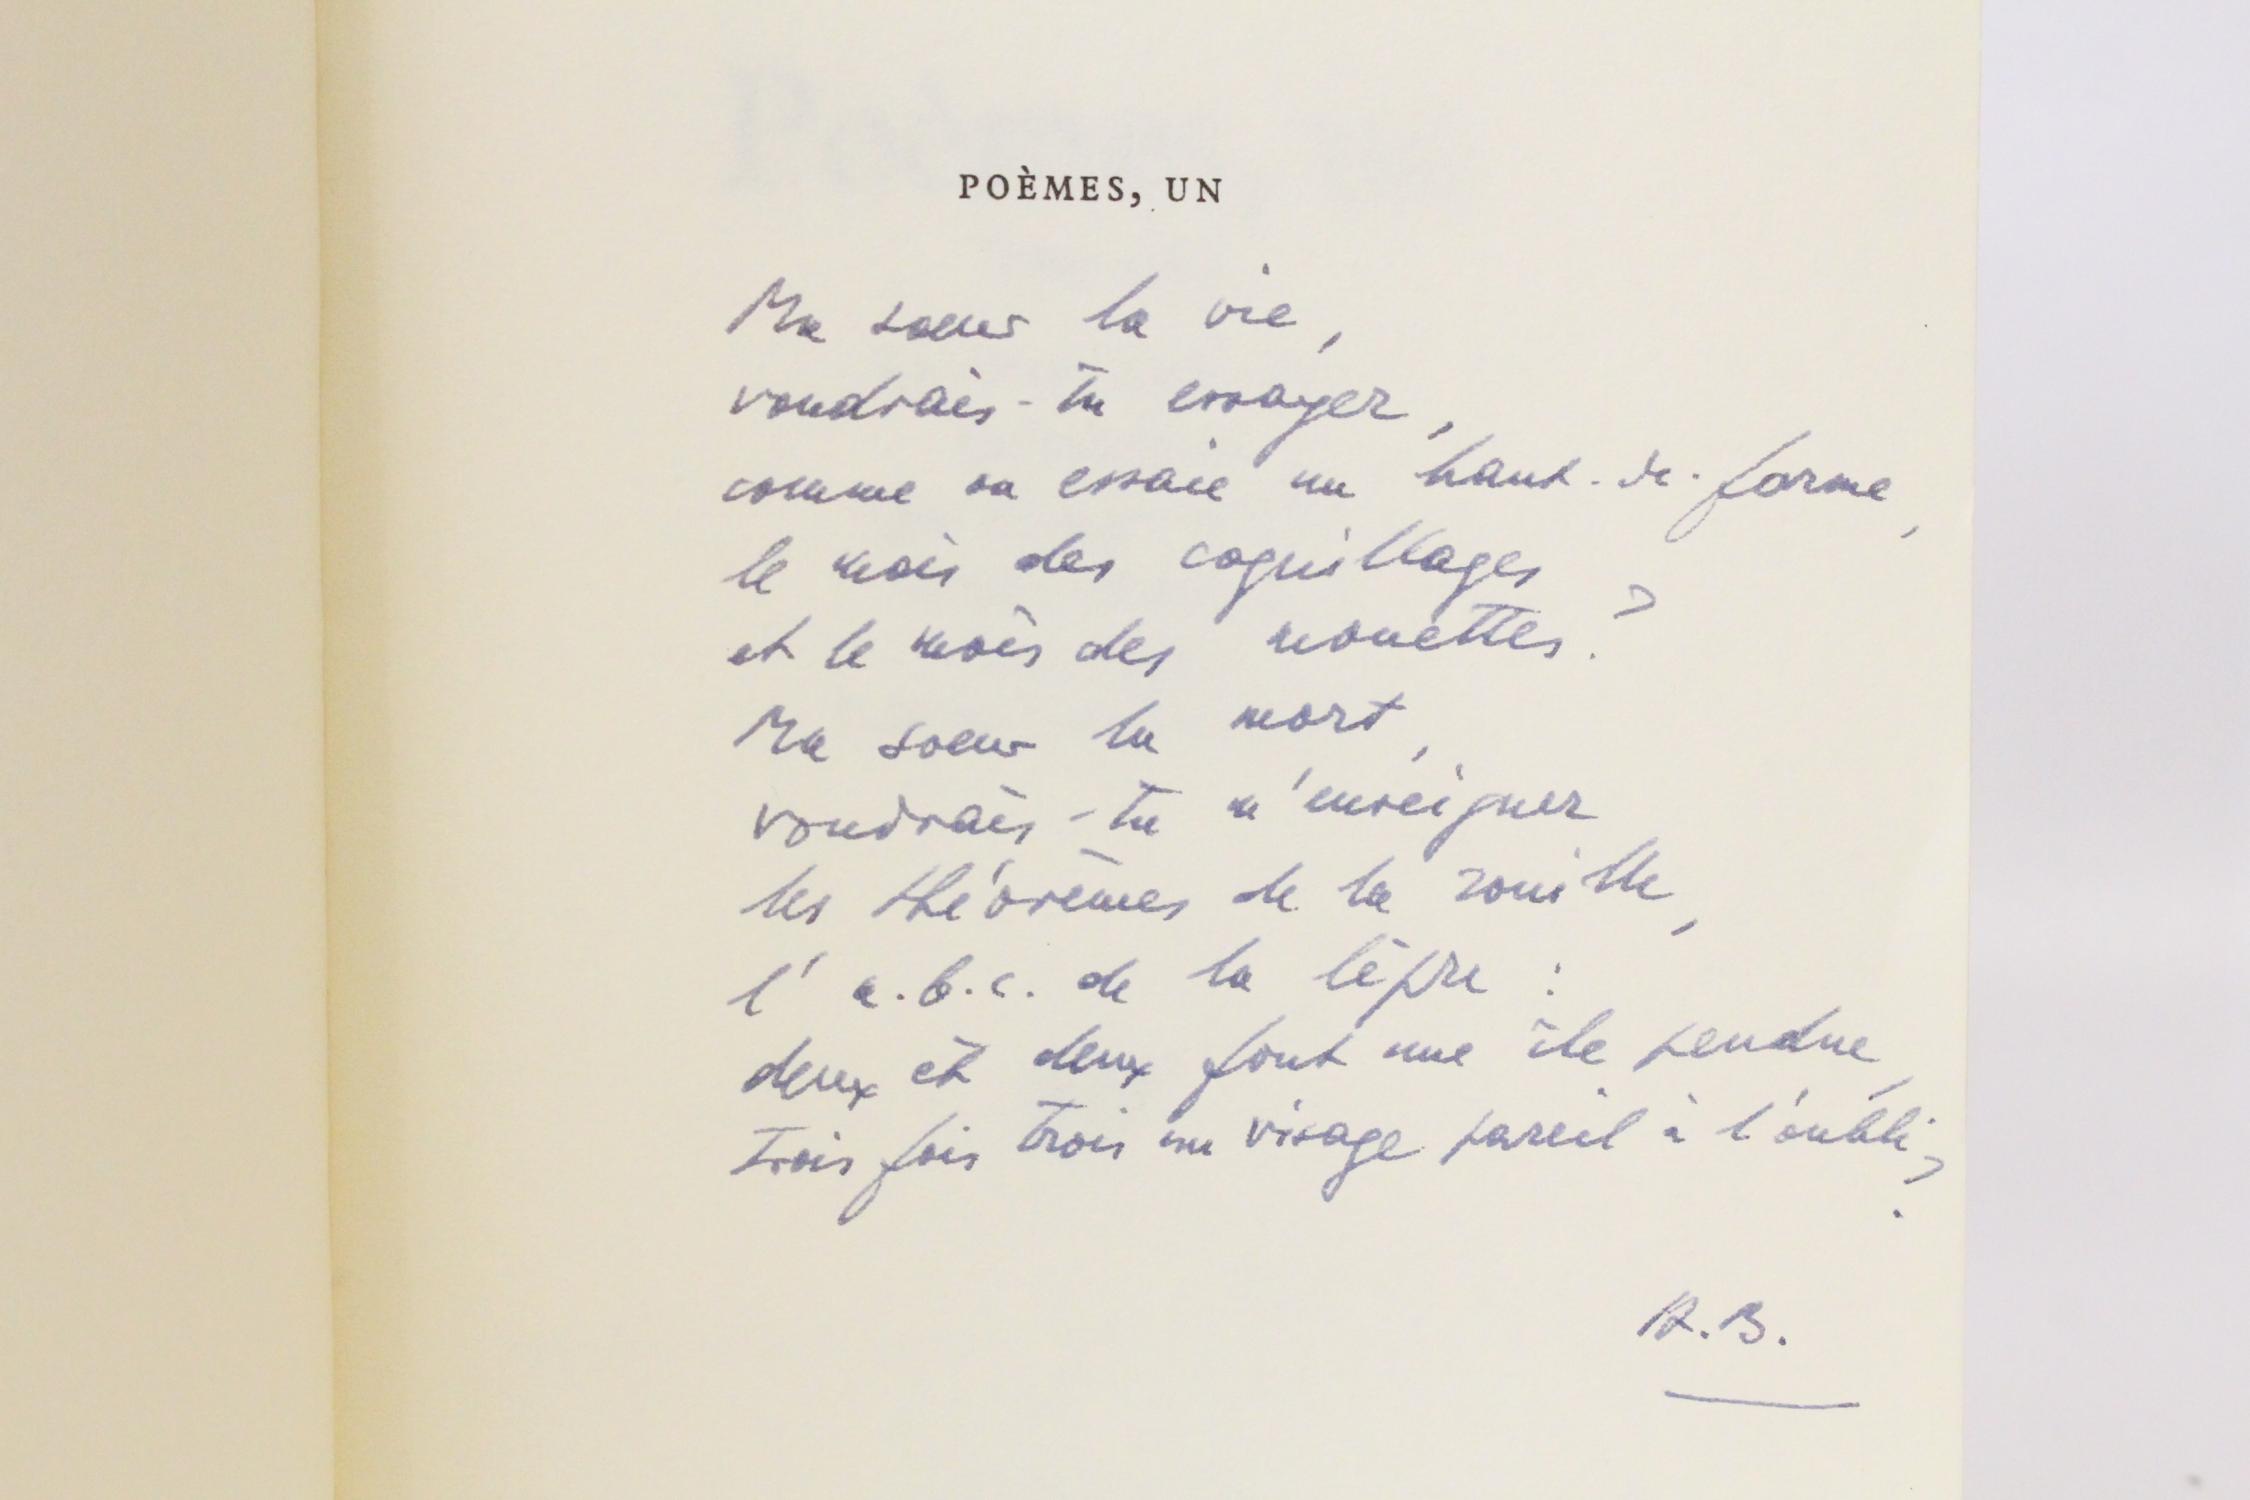 POÈMES, UN
Ma soeur la vie,
voudrais-tu essayer,
comme on essaie un haut-de-forme,
le mois des coquillages
et le mois des mouettes ?
Ma soeur la mort,
voudrais-tu m'enseigner
les théorèmes de la rouille,
l'a.b.c. de la lèpre :
deux et deux font une île pendue,
trois fois trois un visage pareil à l'oubli ?
A.B.